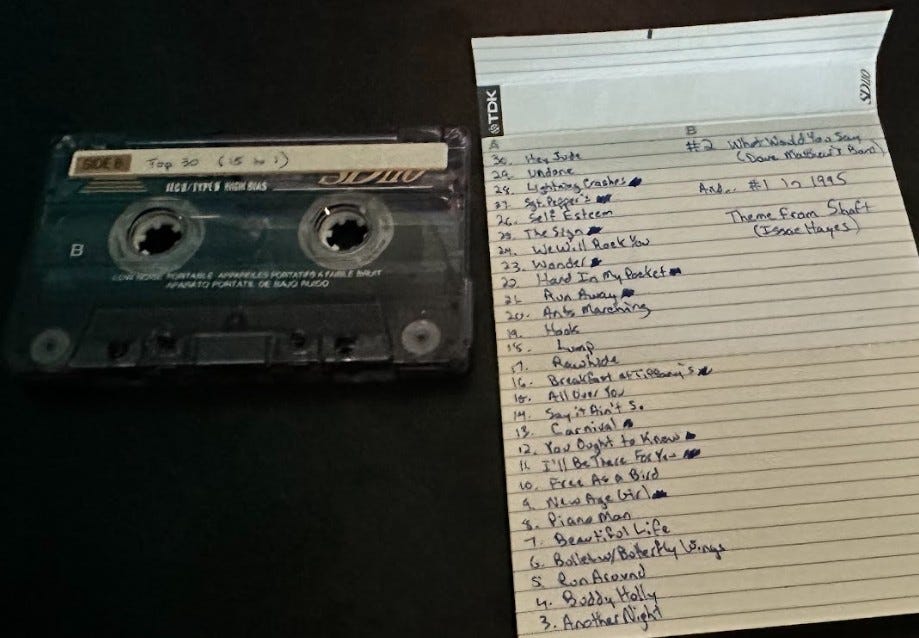 SIDE B Top 30 (15 to 1)
IECII/TYPE II HIGH BIAS
B
LOW NOISE PORTABLE APPAREILES PORTATIFS A FAIBLE BRUIT
APARATO PORTATIL DE BAJO RUIDO
TDK
A
30. Hey Jude
29. Undone
28. Lightning Crashes
27. Sgt. Pepper's
26. Self Esteem
25. The Sign
24. We Will Rock You
23. Wonder
22. Hand In My Pocket
21. Run Away
20. Ants Marching
19. Hook
18. Lump
17. Rawhide
16. Breakfast at Tiffany's
15. All Over You
14. Say it Ain't S.
13. Carnival
12. You Ought to Know
11. I'll Be There For You
10. Free As a Bird
9. New Age Girl
8. Piano Man
7. Beautiful Life
6. Bullet w/ Butterfly Wings
5. Run Around
4. Buddy Holly
3. Another Night
B
#2 What Would You Say
(Dave Matthew's Band)
And... #1 in 1995
Theme From Shaft
(Issac Hayes)